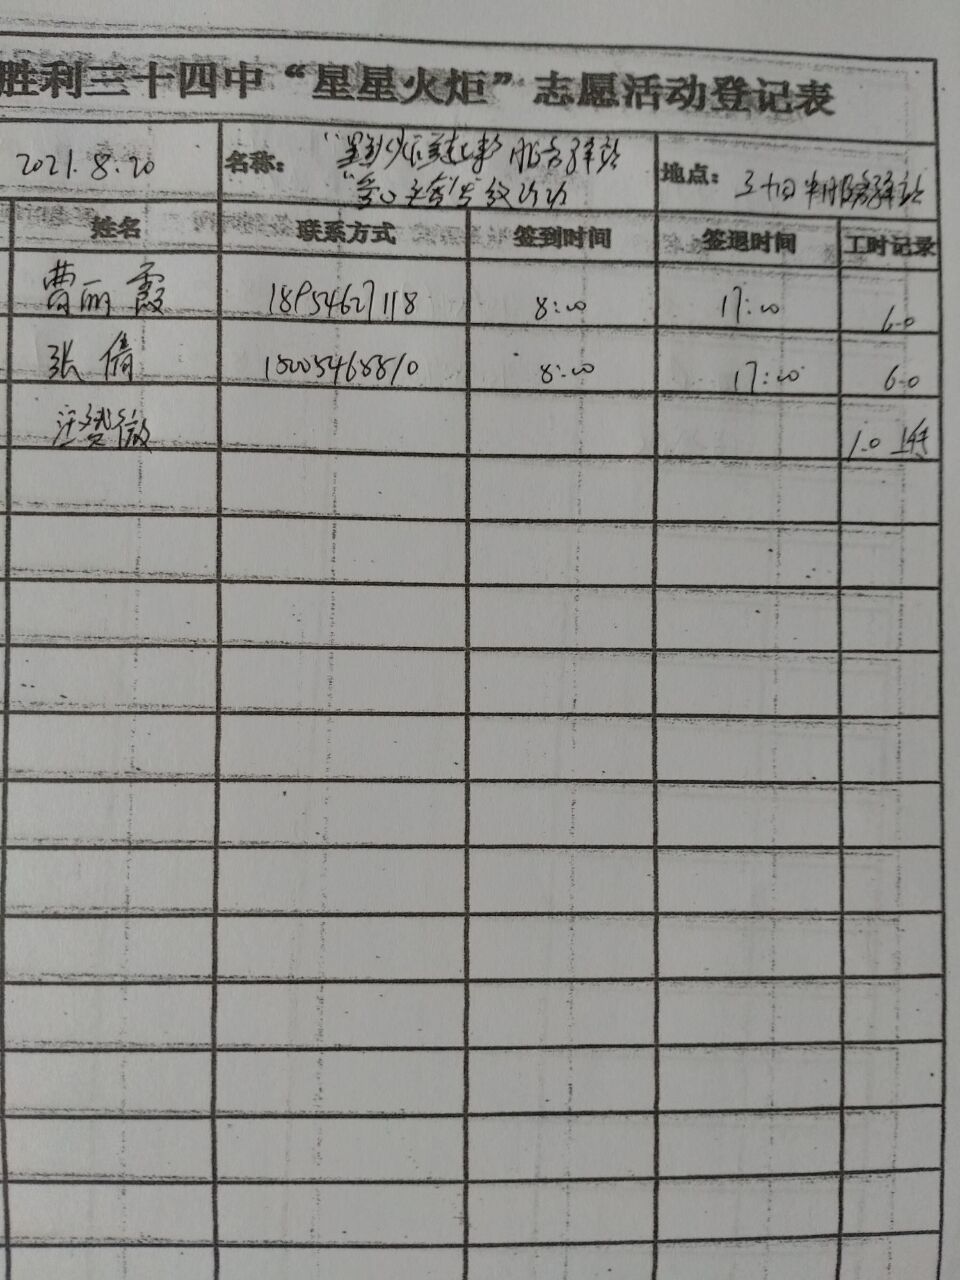 胜利三十四中“星星火炬”志愿活动登记表
2021.8.20 名称: 地点: 三十四中服务驿站
姓名 联系方式 签到时间 签退时间 工时记录
曹丽霞 18954627118 8:00 17:00 6.0
张倩 18005468810 8:00 17:00 6.0
汪赟微 1.0